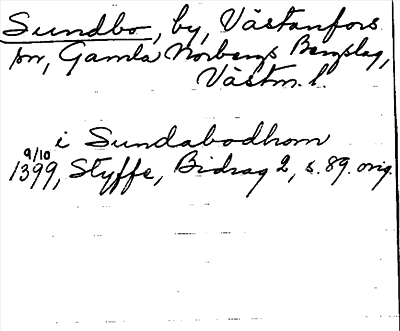 Sundbo, by, Västanfors
sn, Gamla Norbergs Bergslag,
Västm. l.
i Sundabodhom
9/10
1399, Styffe, Bidrag 2, s. 89. orig.